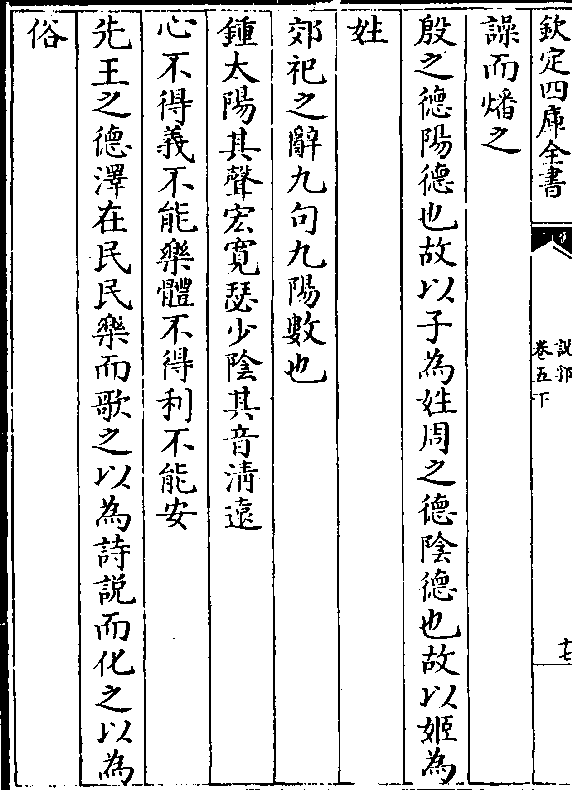 欽定四庫全書
說郛
卷五下
十七
譟而燔之
殷之德陽德也故以子為姓周之德陰德也故以姬為
姓
郊祀之辭九句九陽數也
鍾太陽其聲宏寬瑟少陰其音清遠
心不得義不能樂體不得利不能安
先王之德澤在民民樂而歌之以為詩説而化之以為
俗